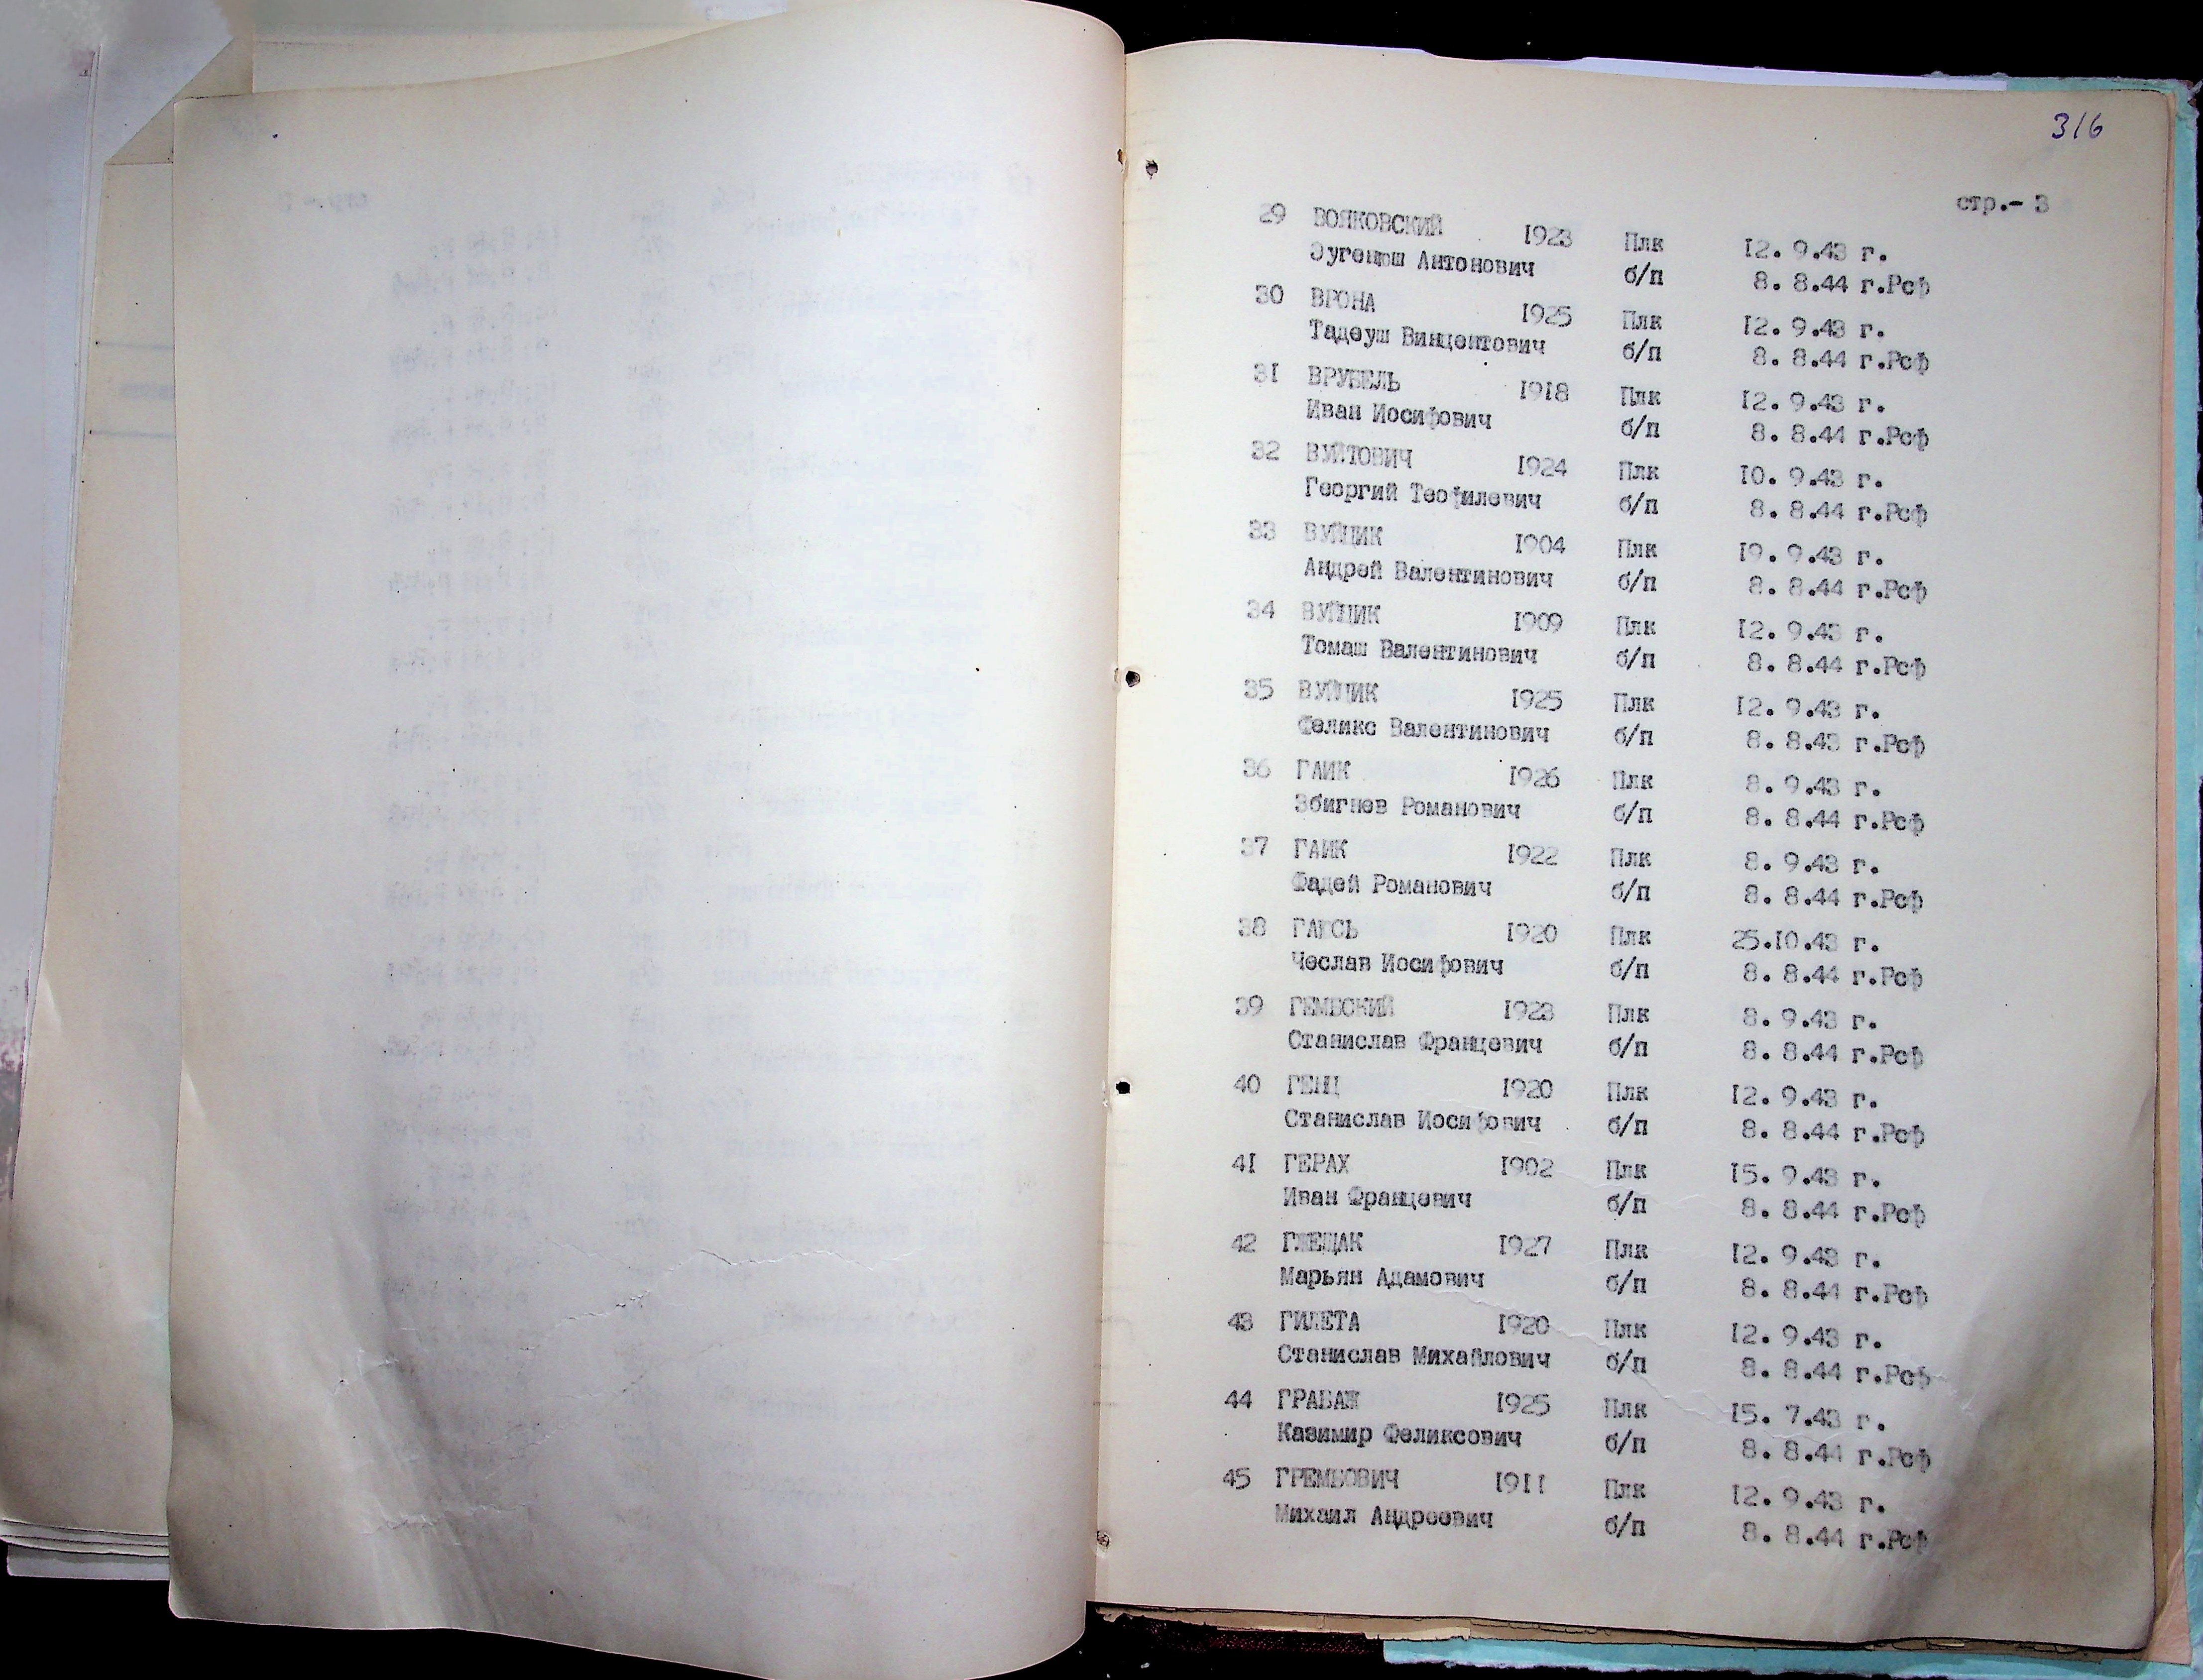 316
стр.- 3
29 ВОЯКОВСКИЙ 1923 Плк 12. 9.43 г.
Эугениш Антонович б/п 8. 8.44 г.Рсф
30 ВРОНА 1925 Плк 12. 9.43 г.
Тадеуш Винцентович б/п 8. 8.44 г.Рсф
31 ВРУБЕЛЬ 1918 Плк 12. 9.43 г.
Иван Иосифович б/п 8. 8.44 г.Рсф
32 ВУЙТОВИЧ 1924 Плк 10. 9.43 г.
Георгий Теофилевич б/п 8. 8.44 г.Рсф
33 ВУЙЦИК 1904 Плк 19. 9.43 г.
Андрей Валентинович б/п 8. 8.44 г.Рсф
34 ВУЙЦИК 1909 Плк 12. 9.43 г.
Томаш Валентинович б/п 8. 8.44 г.Рсф
35 ВУЙЦИК 1925 Плк 12. 9.43 г.
Феликс Валентинович б/п 8. 8.43 г.Рсф
36 ГАИК 1926 Плк 8. 9.43 г.
Збигнев Романович б/п 8. 8.44 г.Рсф
37 ГАИК 1922 Плк 8. 9.43 г.
Фадей Романович б/п 8. 8.44 г.Рсф
38 1920 Плк 25.10.43 г.
Чеслав Иосифович б/п 8. 8.44 г.Рсф
39 ГЕМБСКИЙ 1923 Плк 8. 9.43 г.
Станислав Францевич б/п 8. 8.44 г.Рсф
40 ГЕНЦ 1920 Плк 12. 9.43 г.
Станислав Иосифович б/п 8. 8.44 г.Рсф
41 ГЕРАХ 1902 Плк 15. 9.43 г.
Иван Францевич б/п 8. 8.44 г.Рсф
42 ГЖЕЩАК 1927 Плк 12. 9.43 г.
Марьян Адамович б/п 8. 8.44 г.Рсф
43 ГИЛЕТА 1920 Плк 12. 9.43 г.
Станислав Михайлович б/п 8. 8.44 г.Рсф
44 ГРАБАЖ 1925 Плк 15. 7.43 г.
Казимир Феликсович б/п 8. 8.44 г.Рсф
45 ГРЕМБОВИЧ 1911 Плк 12. 9.43 г.
Михаил Андреевич б/п 8. 8.44 г.Рсф